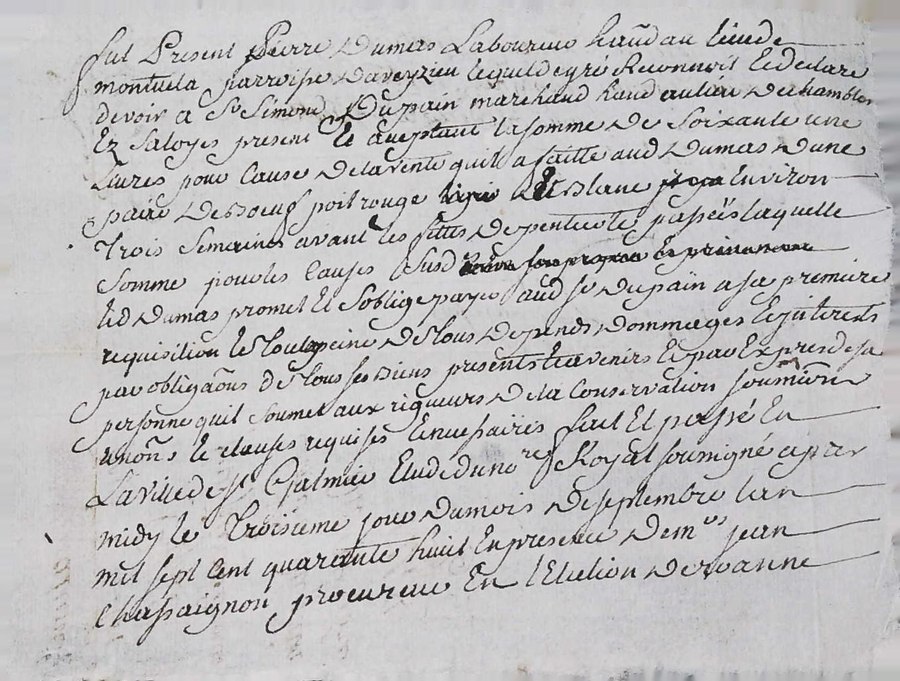 fut Present Pierre Dumas Laboureur hãnt au lieu de
montuela parroisse Daveyzieu lequel de gré Reconnoit et declare
devoir a Sr Simond Dupain marchand hãnt au lieu De Chambles
Ez Saloyes present et aceptant la somme De Soixante une
Livres pour Cause De la vente quil a faitte aud Dumas Dune
paire De Boeufs poil rouge et Blanc Environ
Trois Semaines avant les fettes De pentecote passées laquelle
Somme pour les Causes Susd
led Dumas promet et Soblige payer aud Sr Dupain a sa premiere
requisition et a peine De tous Depends Dommages et interests
par obligãons De tous ses Biens presents et avenirs et par Expres de sa
personne quil Soumet aux rigueurs De la Conservation Soumiõns
renõns et clauses requises et necessaires fait Et passé En
La ville de St Galmier Etude du nore Royal soussigné apres
midy le Troisieme jour du mois De septembre lan
mil sept Cent quarente huit En presence De mes jean
Chassaignon procureur En l'Election De roanne